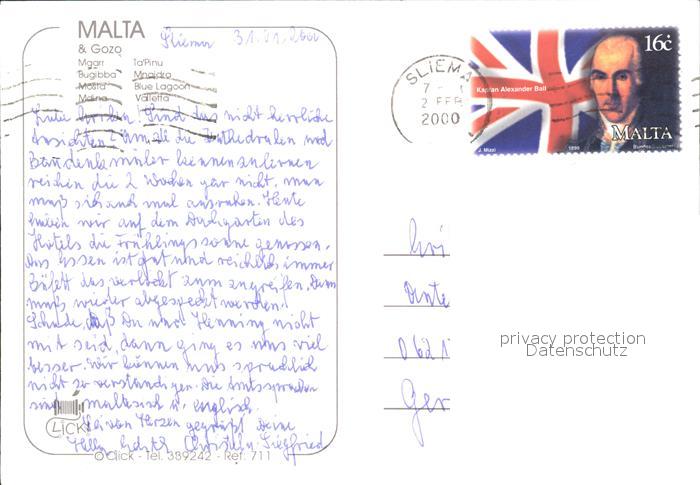 MALTA
& Gozo
Sliema 31.01.2000
Mgarr Ta'Pinu
Bugibba Mnajdra
Mosta Blue Lagoon
Mdina Valletta
Sind das nicht herrliche
Ansichten? Um all die Kathedralen und
Baudenkmäler kennenzulernen
reichen die 2 Wochen gar nicht, man
muß sich auch mal ausruhen. Heute
haben wir auf dem Dachgarten des
Hotels die Frühlingssonne genossen.
Das Essen ist gut und reichlich, immer
Büfett das verlockt zum zugreifen. Dann
muß wieder abgespeckt werden!
Schade, daß Du und Henning nicht
mit seid, dann ging es uns viel
besser. Wir können uns sprachlich
nicht so verständigen. Die Amtssprachen
sind maltesisch u. englisch.
Sei von Herzen gegrüßt Deine
Siegfried
CLICK
© Click - Tel: 339242 - Ref: 711
SLIEMA
7 -
2 FEB
2000
16c
Kaptan Alexander Ball
MALTA
J. Mizzi 1999
Ger
privacy protection
Datenschutz